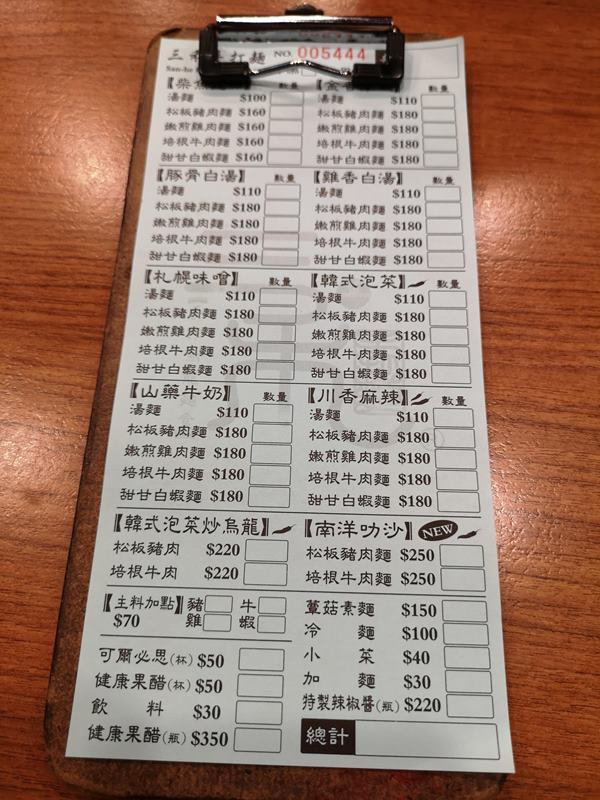 三 打麵 NO. 005444
San-he
【柴魚 數量
湯麵 $100
松板豬肉麵 $160
嫩煎雞肉麵 $160
培根牛肉麵 $160
甜甘白蝦麵 $160
【金 數量
湯麵 $110
松板豬肉麵 $180
嫩煎雞肉麵 $180
培根牛肉麵 $180
甜甘白蝦麵 $180
【豚骨白湯】 數量
湯麵 $110
松板豬肉麵 $180
嫩煎雞肉麵 $180
培根牛肉麵 $180
甜甘白蝦麵 $180
【雞香白湯】 數量
湯麵 $110
松板豬肉麵 $180
嫩煎雞肉麵 $180
培根牛肉麵 $180
甜甘白蝦麵 $180
【札幌味噌】 數量
湯麵 $110
松板豬肉麵 $180
嫩煎雞肉麵 $180
培根牛肉麵 $180
甜甘白蝦麵 $180
【韓式泡菜】 數量
湯麵 $110
松板豬肉麵 $180
嫩煎雞肉麵 $180
培根牛肉麵 $180
甜甘白蝦麵 $180
【山藥牛奶】 數量
湯麵 $110
松板豬肉麵 $180
嫩煎雞肉麵 $180
培根牛肉麵 $180
甜甘白蝦麵 $180
【川香麻辣】 數量
湯麵 $110
松板豬肉麵 $180
嫩煎雞肉麵 $180
培根牛肉麵 $180
甜甘白蝦麵 $180
【韓式泡菜炒烏龍】
松板豬肉 $220
培根牛肉 $220
【南洋叻沙】 NEW
松板豬肉麵 $250
培根牛肉麵 $250
【主料加點】 豬 牛
$70 雞 蝦
可爾必思(杯) $50
健康果醋(杯) $50
飲料 $30
健康果醋(瓶) $350
蕈菇素麵 $150
冷麵 $100
小菜 $40
加麵 $30
特製辣椒醬(瓶) $220
總計